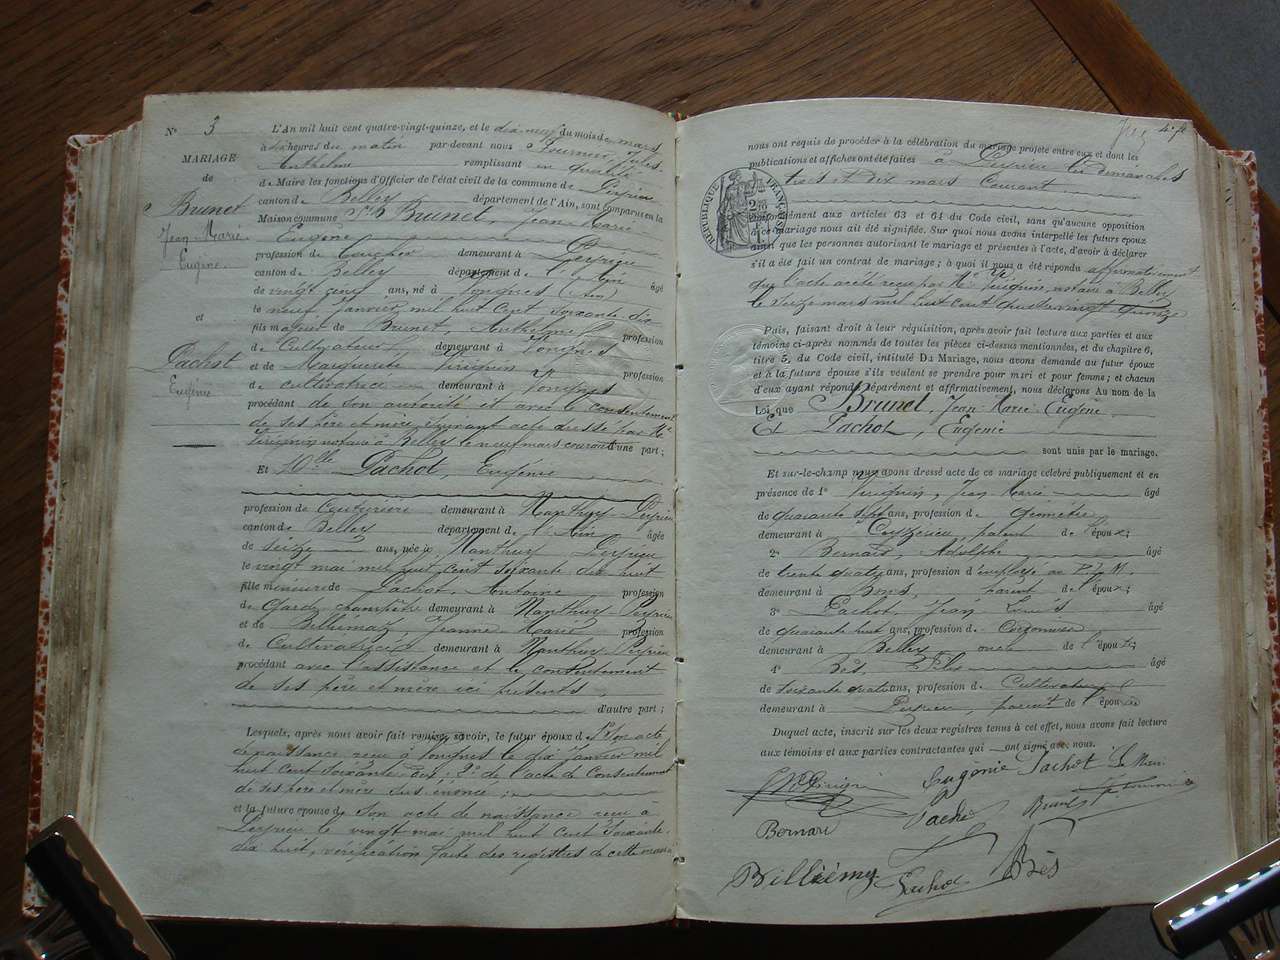 N° 3
MARIAGE
de
Brunet
Jean Marie
Eugène
et
Pachot
Eugénie
L'An mil huit cent quatre-vingt-quinze, et le dix neuf du mois de mars
à six heures du matin par-devant nous Fournier, Jules
Anthelme remplissant en qualité
de Maire les fonctions d'Officier de l'état civil de la commune de Peyrieu
canton de Belley département de l'Ain, sont comparus en la
Maison commune Brunet, Jean Marie
Eugène
profession de demeurant à Peyrieu
canton de Belley département de l'Ain âgé
de vingt cinq ans, né à Vongnes (Ain)
le neuf Janvier mil huit Cent Soixante dix
fils majeur de Brunet, Anthelme profession
de Cultivateur demeurant à Vongnes
et de Marguerite profession
de cultivatrice demeurant à Vongnes
procédant de son autorité et avec le consentement
de ses père et mère suivant acte dressé par Me
notaire à Belley le neuf mars courant d'une part ;
Et Dlle Pachot, Eugénie
profession de Couturière demeurant à Nanthuy Peyrieu
canton de Belley département de l'Ain âgée
de seize ans, née à Nanthuy Peyrieu
le vingt mai mil huit Cent soixante dix huit
fille mineure de Pachot, Antoine profession
de Garde champêtre demeurant à Nanthuy Peyrieu
et de Billiémaz, Jeanne Marie profession
de Cultivatrice demeurant à Nanthuy Peyrieu
procédant avec l'assistance et le consentement
de ses père et mère ici présents,
d'autre part ;
Lesquels, après nous avoir fait remise, savoir, le futur époux d 1° Son acte
de naissance reçu à Vongnes le dix Janvier mil
huit Cent Soixante dix ; 2° de l'acte de Consentement
de ses père et mère sus énoncé ;
et la future épouse de Son acte de naissance reçu à
Peyrieu le vingt mai mil huit Cent Soixante
dix huit, vérification faite des registres de cette mairie
nous ont requis de procéder à la célébration du mariage projeté entre eux et dont les
publications et affiches ont été faites à Peyrieu les dimanches
trois et dix mars Courant
RÉPUBLIQUE FRANÇAISE
Conformément aux articles 63 et 64 du Code civil, sans qu'aucune opposition
à ce mariage nous ait été signifiée. Sur quoi nous avons interpellé les futurs époux
ainsi que les personnes autorisant le mariage et présentes à l'acte, d'avoir à déclarer
s'il a été fait un contrat de mariage ; à quoi il nous a été répondu affirmativement
que l'acte a été reçu par Me notaire à Belley
le Seize mars mil huit Cent quatre vingt quinze
Puis, faisant droit à leur réquisition, après avoir fait lecture aux parties et aux
témoins ci-après nommés de toutes les pièces ci-dessus mentionnées, et du chapitre 6,
titre 5, du Code civil, intitulé Du Mariage, nous avons demandé au futur époux
et à la future épouse s'ils veulent se prendre pour mari et pour femme ; et chacun
d'eux ayant répondu séparément et affirmativement, nous déclarons Au nom de la
Loi que Brunet, Jean Marie Eugène
Et Pachot, Eugénie
sont unis par le mariage.
Et sur-le-champ nous avons dressé acte de ce mariage célébré publiquement et en
présence de 1° Jean Marie âgé
de quarante sept ans, profession de géomètre
demeurant à Ceyzérieu, parent de l'époux ;
2° Bernard, Adolphe âgé
de trente quatre ans, profession d'employé au P.L.M.
demeurant à Bons, parent de l'époux ;
3° Pachot, Jean Louis âgé
de quarante huit ans, profession d
demeurant à Belley, oncle de l'épouse ;
4° Bès, âgé
de soixante quatre ans, profession d Cultivateur
demeurant à Peyrieu, parent de l'épouse
Duquel acte, inscrit sur les deux registres tenus à cet effet, nous avons fait lecture
aux témoins et aux parties contractantes qui ont signé avec nous.
Eugénie Pachot
Bernard Pachot Brunet
Billiémaz Pachot Bès